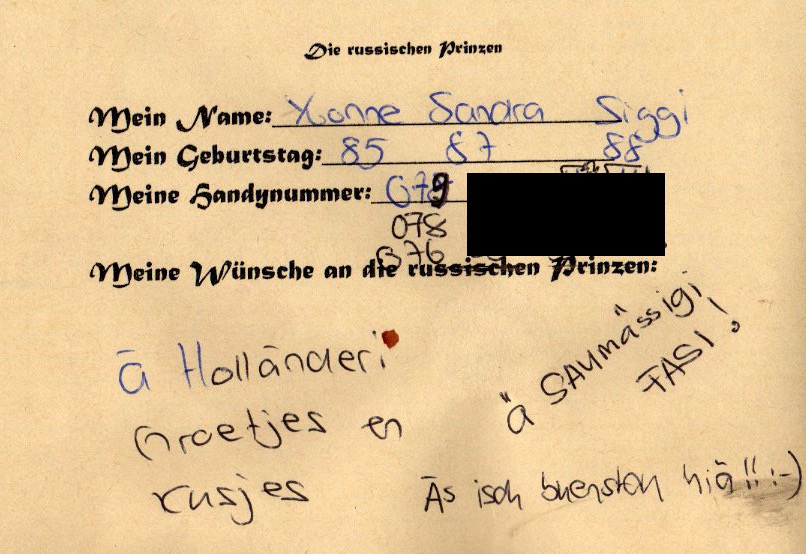 Die russischen Prinzen
Mein Name: Yvonne Sandra Siggi
Mein Geburtstag: 85 87 88
Meine Handynummer: 079
078
076
Meine Wünsche an die russischen Prinzen:
ä Holländeri
Groetjes en
kusjes
ä SAUmässigi
FASI!
Äs isch huerä hiä!! :-)